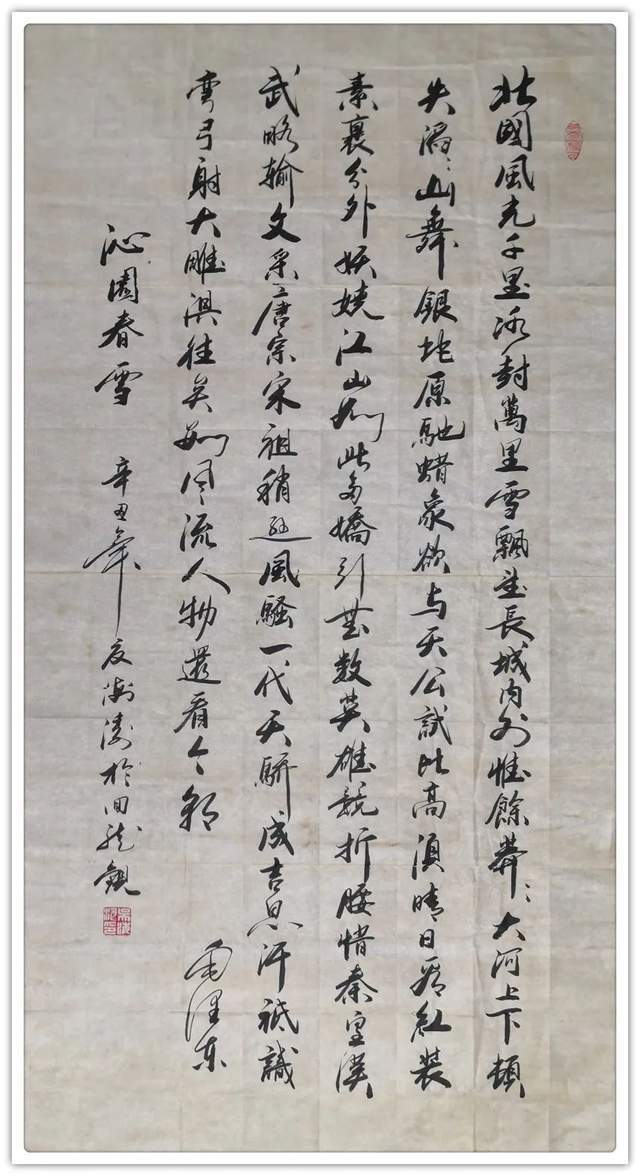 北國風光千里冰封萬里雪飄望長城内外惟餘莽〻大河上下頓
失滔〻山舞銀蛇原馳蜡象欲与天公試比高須晴日看紅装
素裹分外妖嬈江山如此多嬌引無数英雄競折腰惜秦皇漢
武略輸文采唐宗宋祖稍遜風騷一代天驕成吉思汗祗識
彎弓射大雕俱往矣數風流人物還看今朝 毛澤东
沁園春雪 辛丑年 於回龍觀